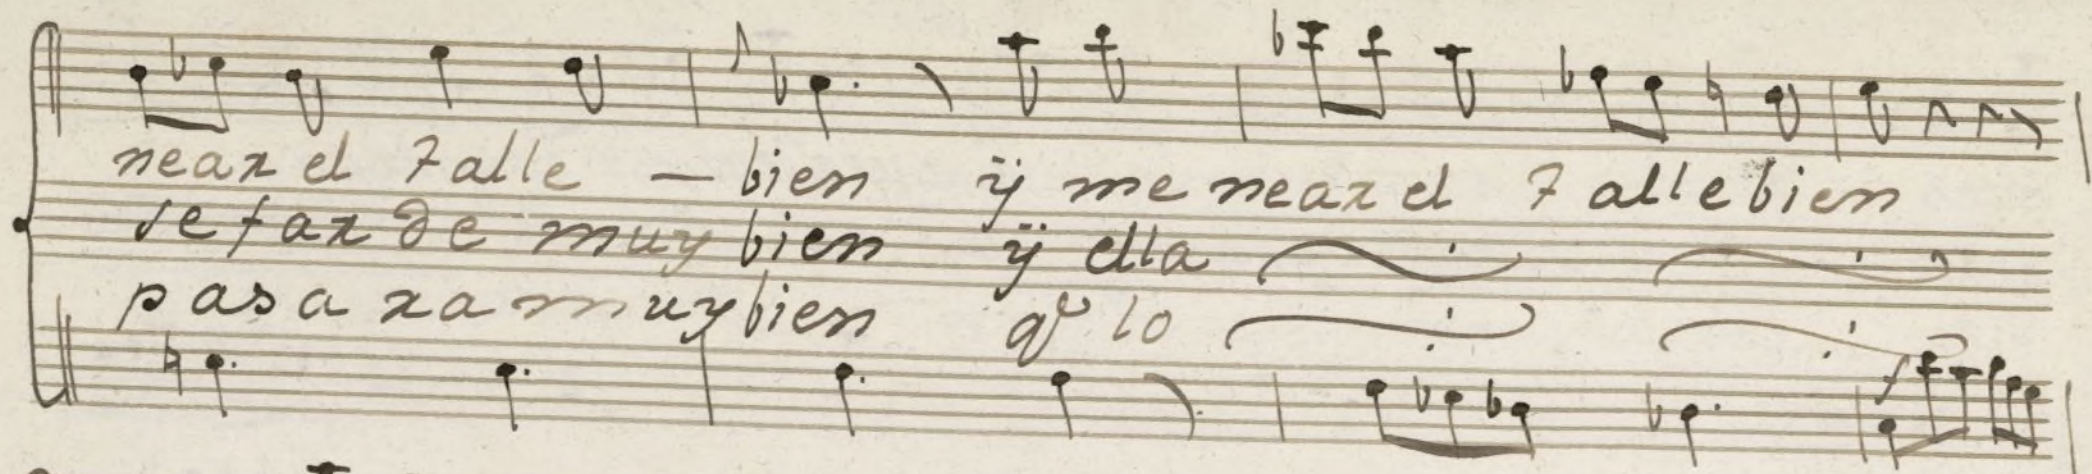 near el talle — bien ÿ me near el talle bien
se tarde muy bien ÿ ella
pasara muy bien qe lo